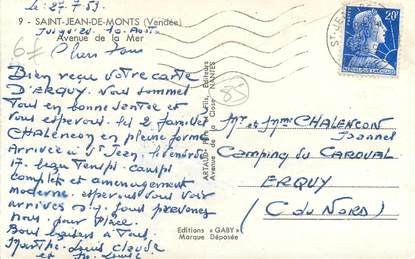 Le 27-7-59
9 - SAINT-JEAN-DE-MONTS (Vendée)
Jusqu'au 10 Août
Avenue de la Mer
Chers tous
Bien reçu votre carte
D'ERQUY. Nous sommes
tous en bonne santé et
vous espérons les 2 familles
CHALENCON en pleine forme
Arrivée à St Jean le vendredi
17. beau temps camps
complets et aménagement
moderne. espérons vous voir
arrives
nous pour place
Bons baisers à tous
Marthe Louis Claude
et
ARTAUD Père et Fils, Editeurs
Avenue de la Close NANTES
Editions « GABY »
Marque Déposée
85
20F
ST-JEAN
Mr et Mme CHALENCON
Camping du CAROUAL
ERQUY
(C du NORD)